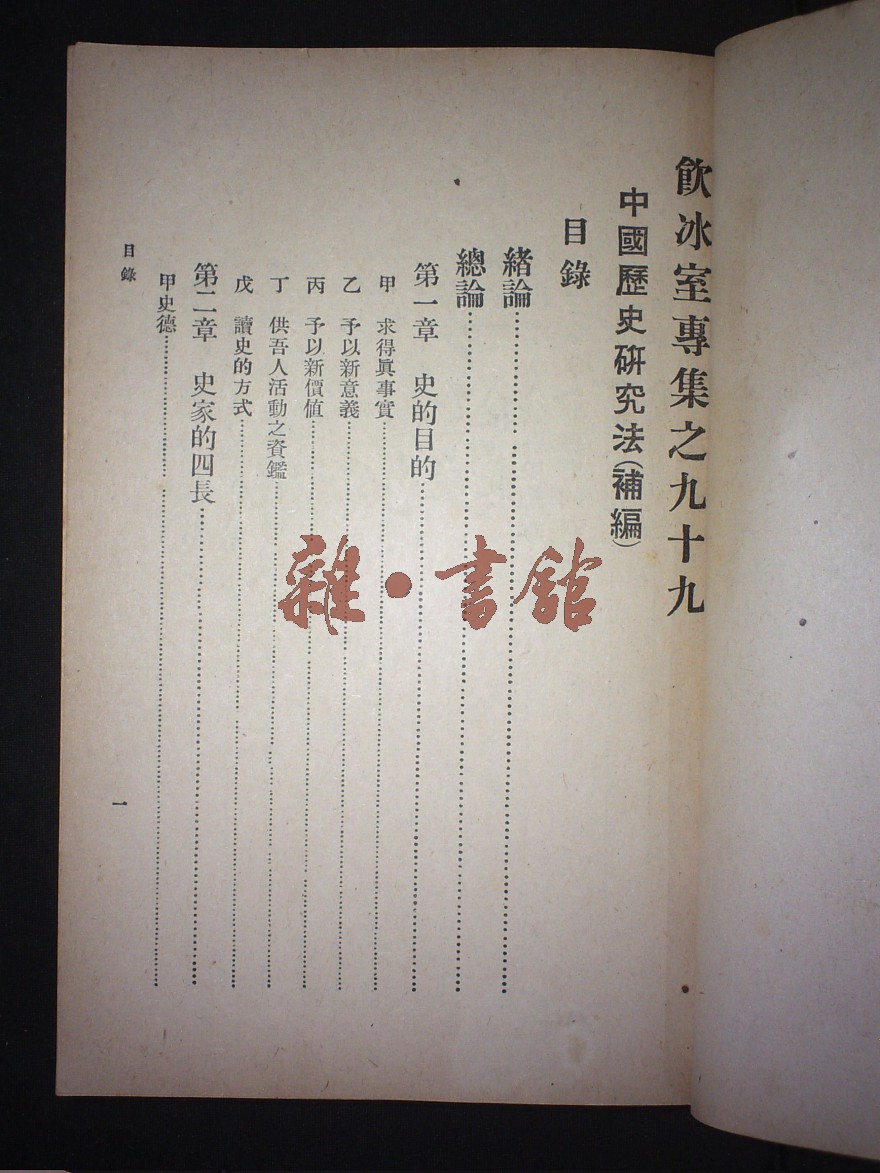 飲冰室專集之九十九
中國歷史研究法(補編)
目錄
緒論
總論
第一章 史的目的
甲 求得眞事實
乙 予以新意義
丙 予以新價値
丁 供吾人活動之資鑑
戊 讀史的方式
第二章 史家的四長
甲史德
目錄
一
雜·書館